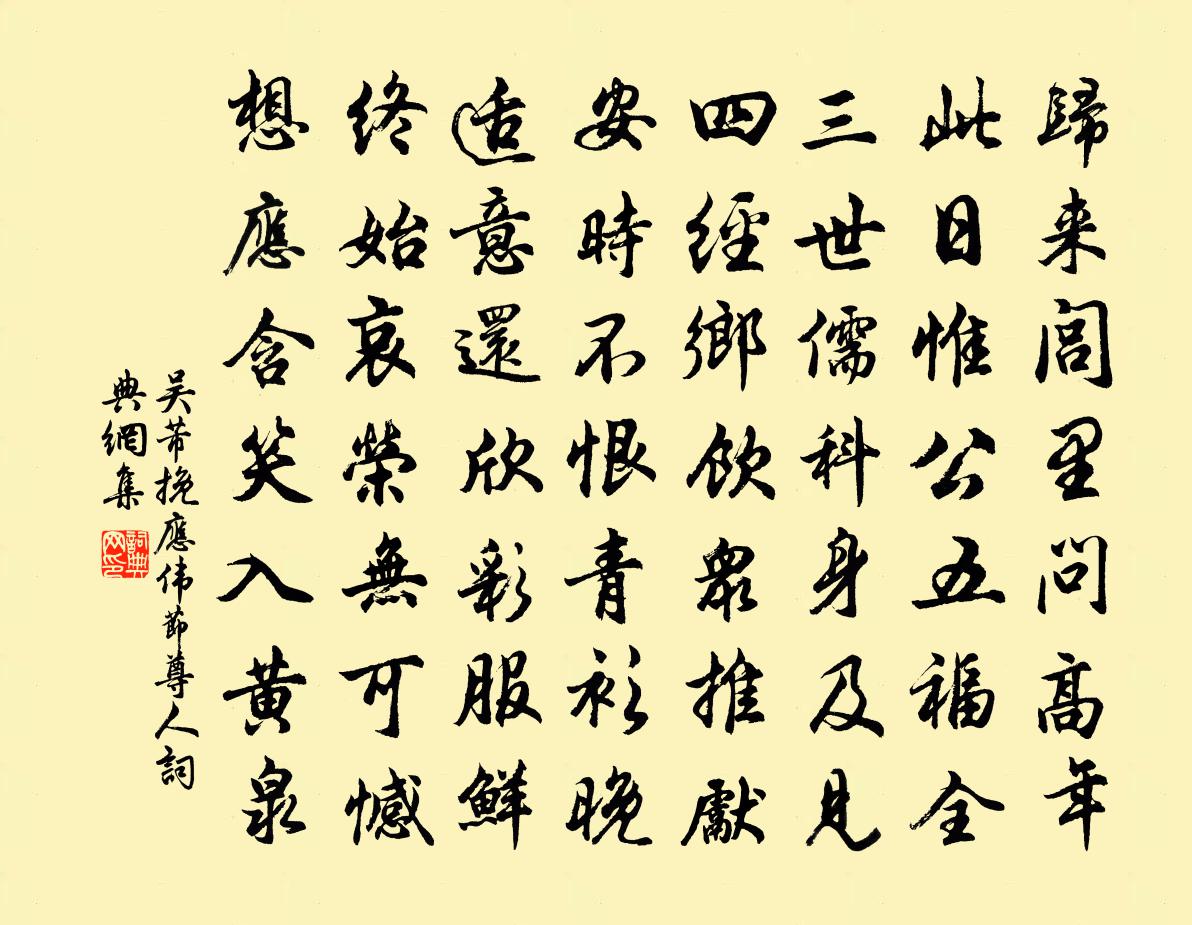 歸来閭里問高年
此日惟公五福全
三世儒科身及見
四經鄉飲衆推獻
安時不恨青衫晚
适意還欣彩服鮮
終始哀榮無可憾
想應含笑入黄泉
吴芾挽應伟節尊人詞
典網集
詞典
网印